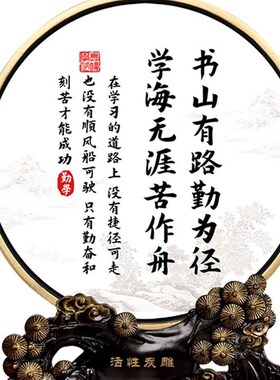 书山有路勤为径
学海无涯苦作舟
在学习的道路上没有捷径可走
也没有順风船可驶只有勤奋和
刻苦才能成功
勤學
活性炭雕